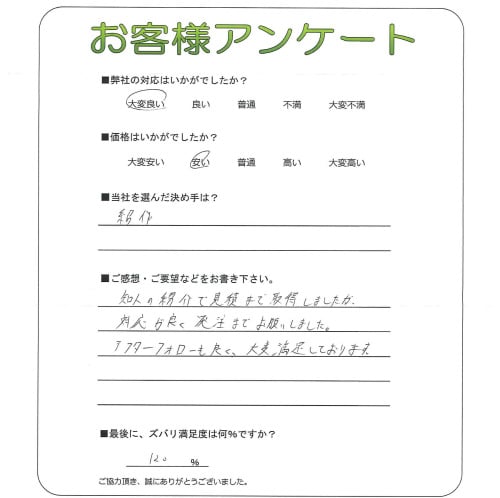 お客様アンケート
■弊社の対応はいかがでしたか？
大変良い 良い 普通 不満 大変不満
■価格はいかがでしたか？
大変安い 安い 普通 高い 大変高い
■当社を選んだ決め手は？
紹介
■ご感想・ご要望などをお書き下さい。
知人の紹介で見積まで取得しましたが、
対応が良く発注までお願いしました。
アフターフォローも良く、大変満足しております。
■最後に、ズバリ満足度は何％ですか？
120 ％
ご協力頂き、誠にありがとうございました。